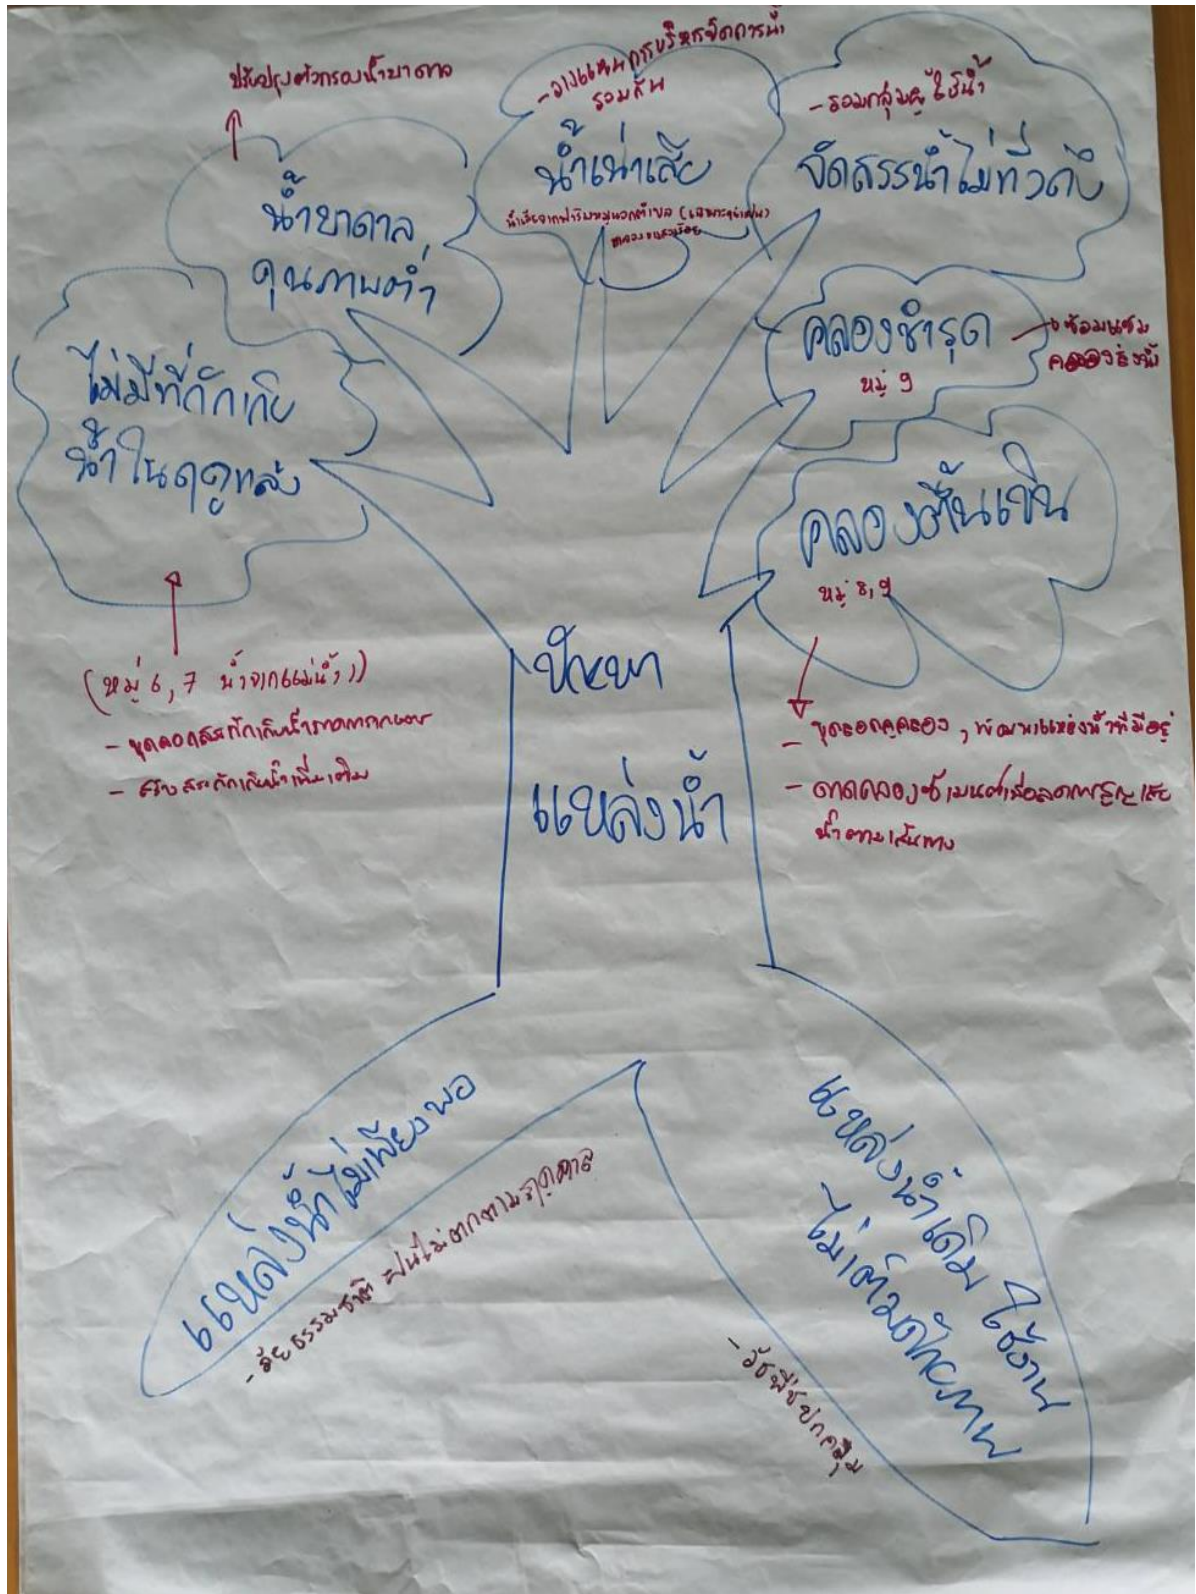 ปรับปรุงตัวกรองน้ำบาดาล
น้ำบาดาล
คุณภาพต่ำ
- วางแผนการบริหารจัดการน้ำ
รวมกัน
น้ำเน่าเสีย
น้ำเสียจากฟาร์มหมูนอกตำบล
- รวมกลุ่มผู้ใช้น้ำ
จัดสรรน้ำไม่ทั่วถึง
คลองชำรุด
หมู่ 9
ซ่อมแซม
คลองส่งน้ำ
ไม่มีที่กักเก็บ
น้ำในฤดูแล้ง
(หมู่ 6, 7 น้ำจากแม่น้ำ)
- ขุดลอกสระกักเก็บน้ำ
- สร้างสระกักเก็บน้ำเพิ่มเติม
คลองตื้นเขิน
หมู่ 8, 9
- ขุดลอกคูคลอง, พัฒนาแหล่งน้ำที่มีอยู่
- ดาดคลองซีเมนต์เพื่อลดการสูญเสีย
น้ำตามเส้นทาง
ปัญหา
แหล่งน้ำ
แหล่งน้ำไม่เพียงพอ
- ภัยธรรมชาติ ฝนไม่ตกตามฤดูกาล
แหล่งน้ำเดิม ใช้งาน
ไม่เต็มศักยภาพ
- วัชพืชปกคลุม